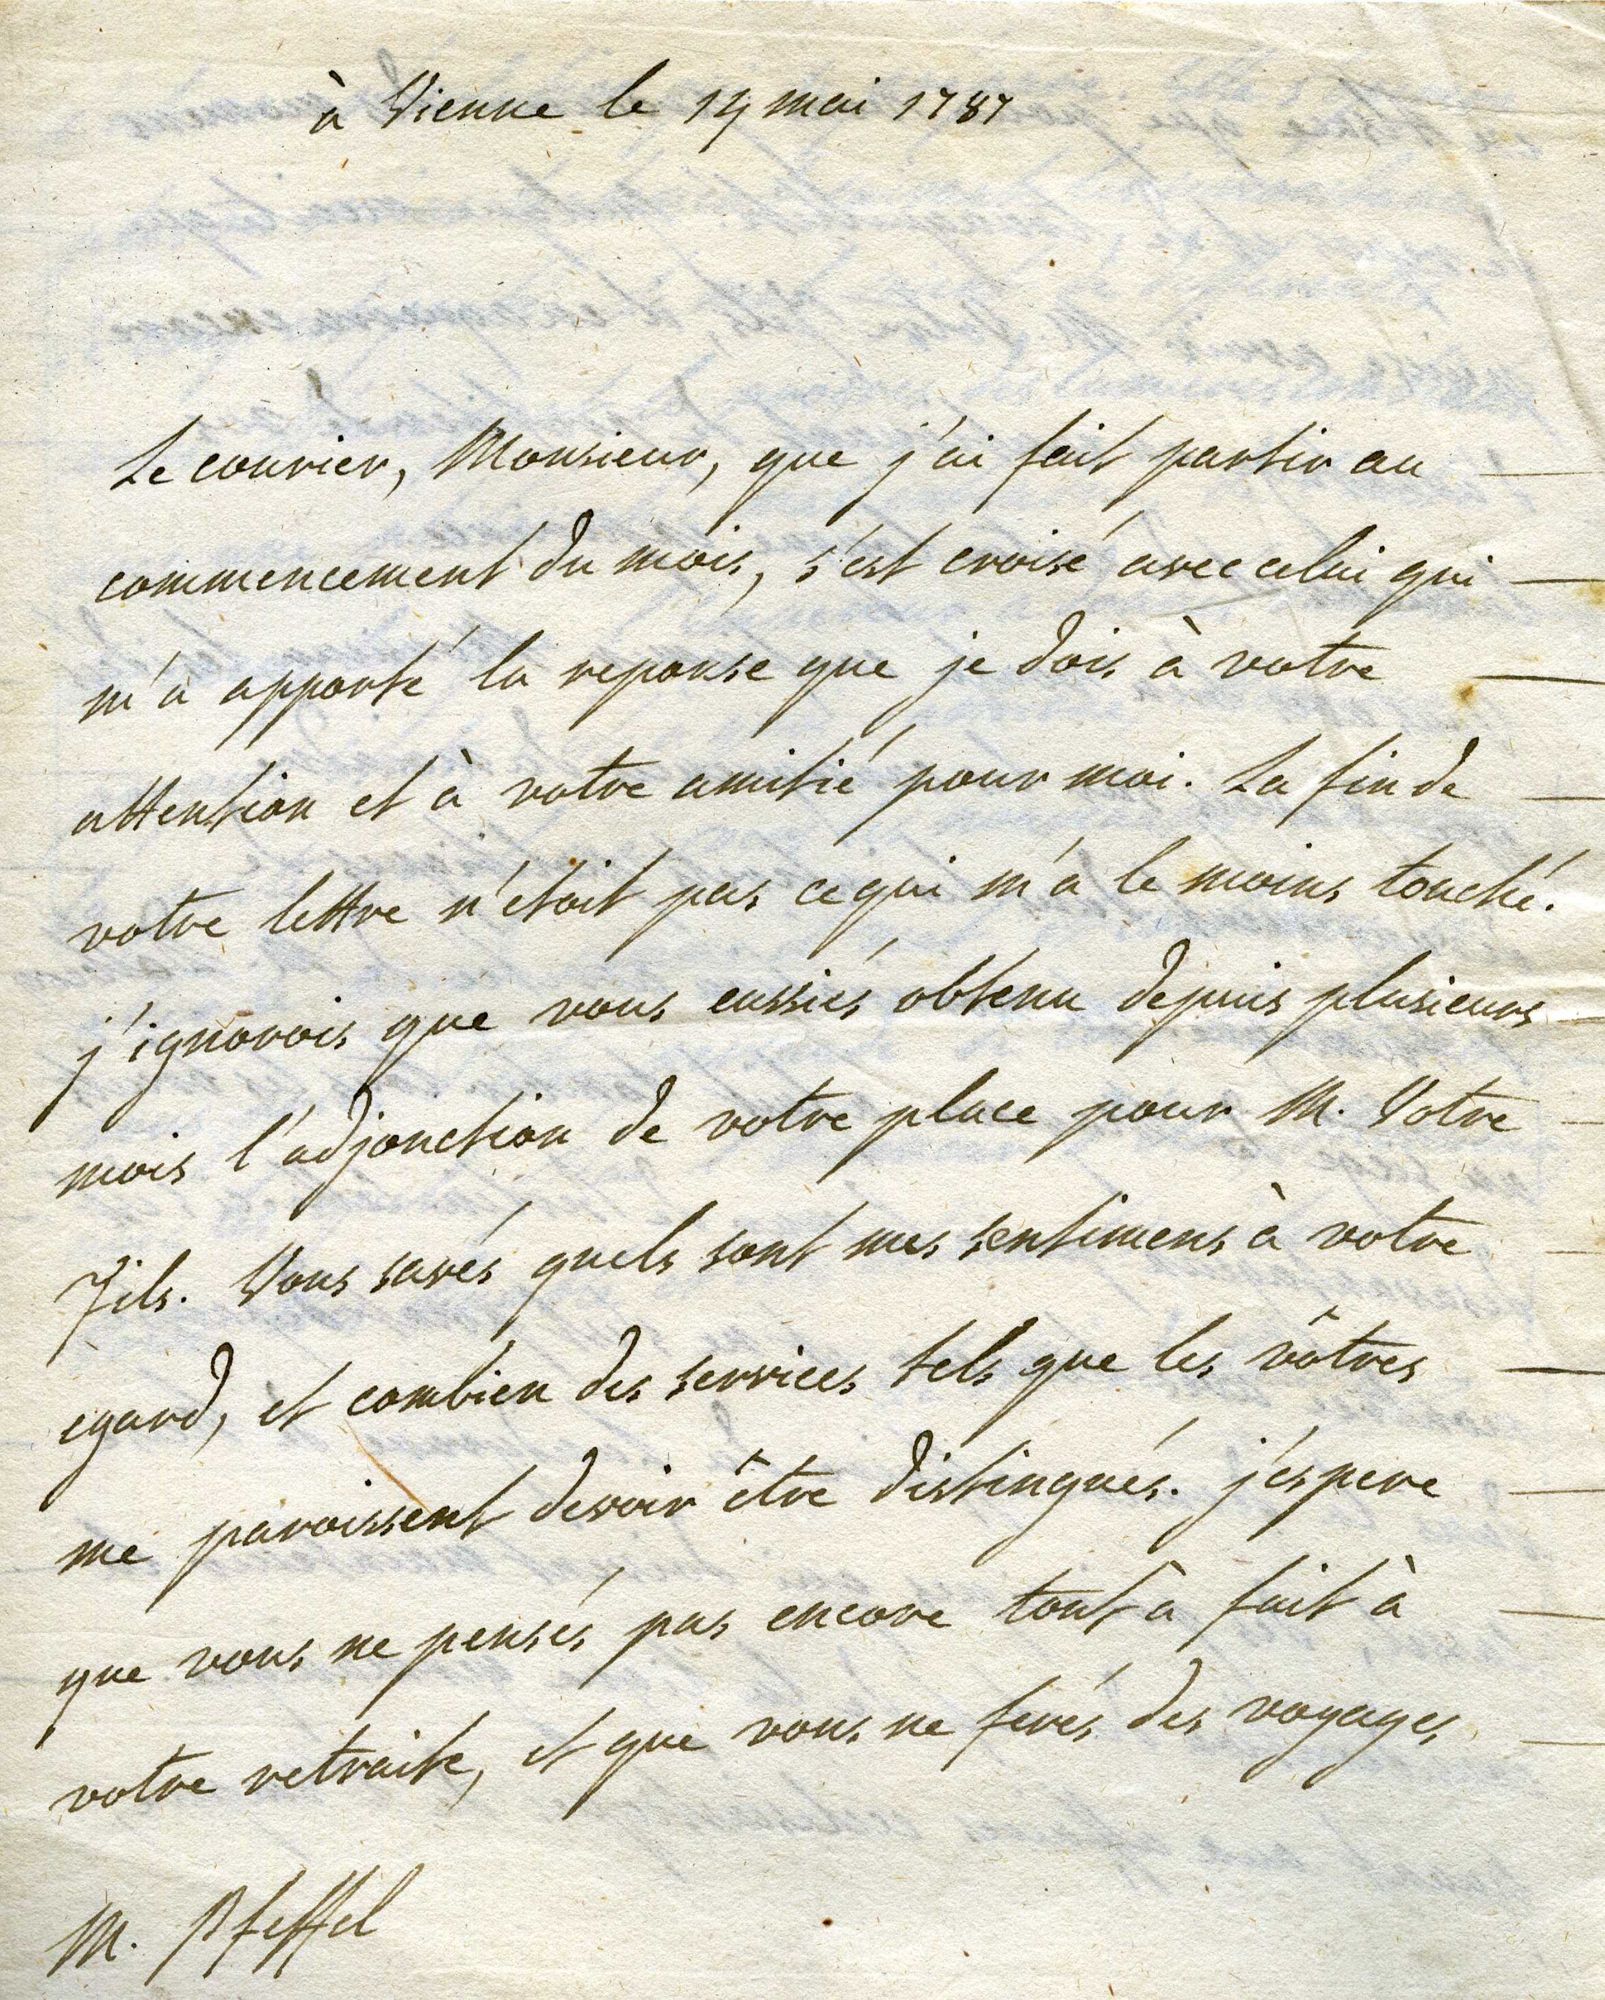 à Vienne le 14 mai 1787
Le courier, Monsieur, que j'ai fait partir au
commencement du mois, s'est croisé avec celui qui
m'a apporté la reponse que je dois à votre
attention et à votre amitié pour moi. La fin de
votre lettre n'étoit pas ce qui m'a le moins touché.
j'ignorois que vous eussiés obtenu depuis plusieurs
mois l'adjonction de votre place pour M. Votre
Fils. Vous savés quels sont mes sentimens à votre
egard, et combien des services tels que les vôtres
me paroissent devoir être distingués. j'espere
que vous ne pensés pas encore tout à fait à
votre retraite, et que vous ne ferés des voyages
M. Pfeffel